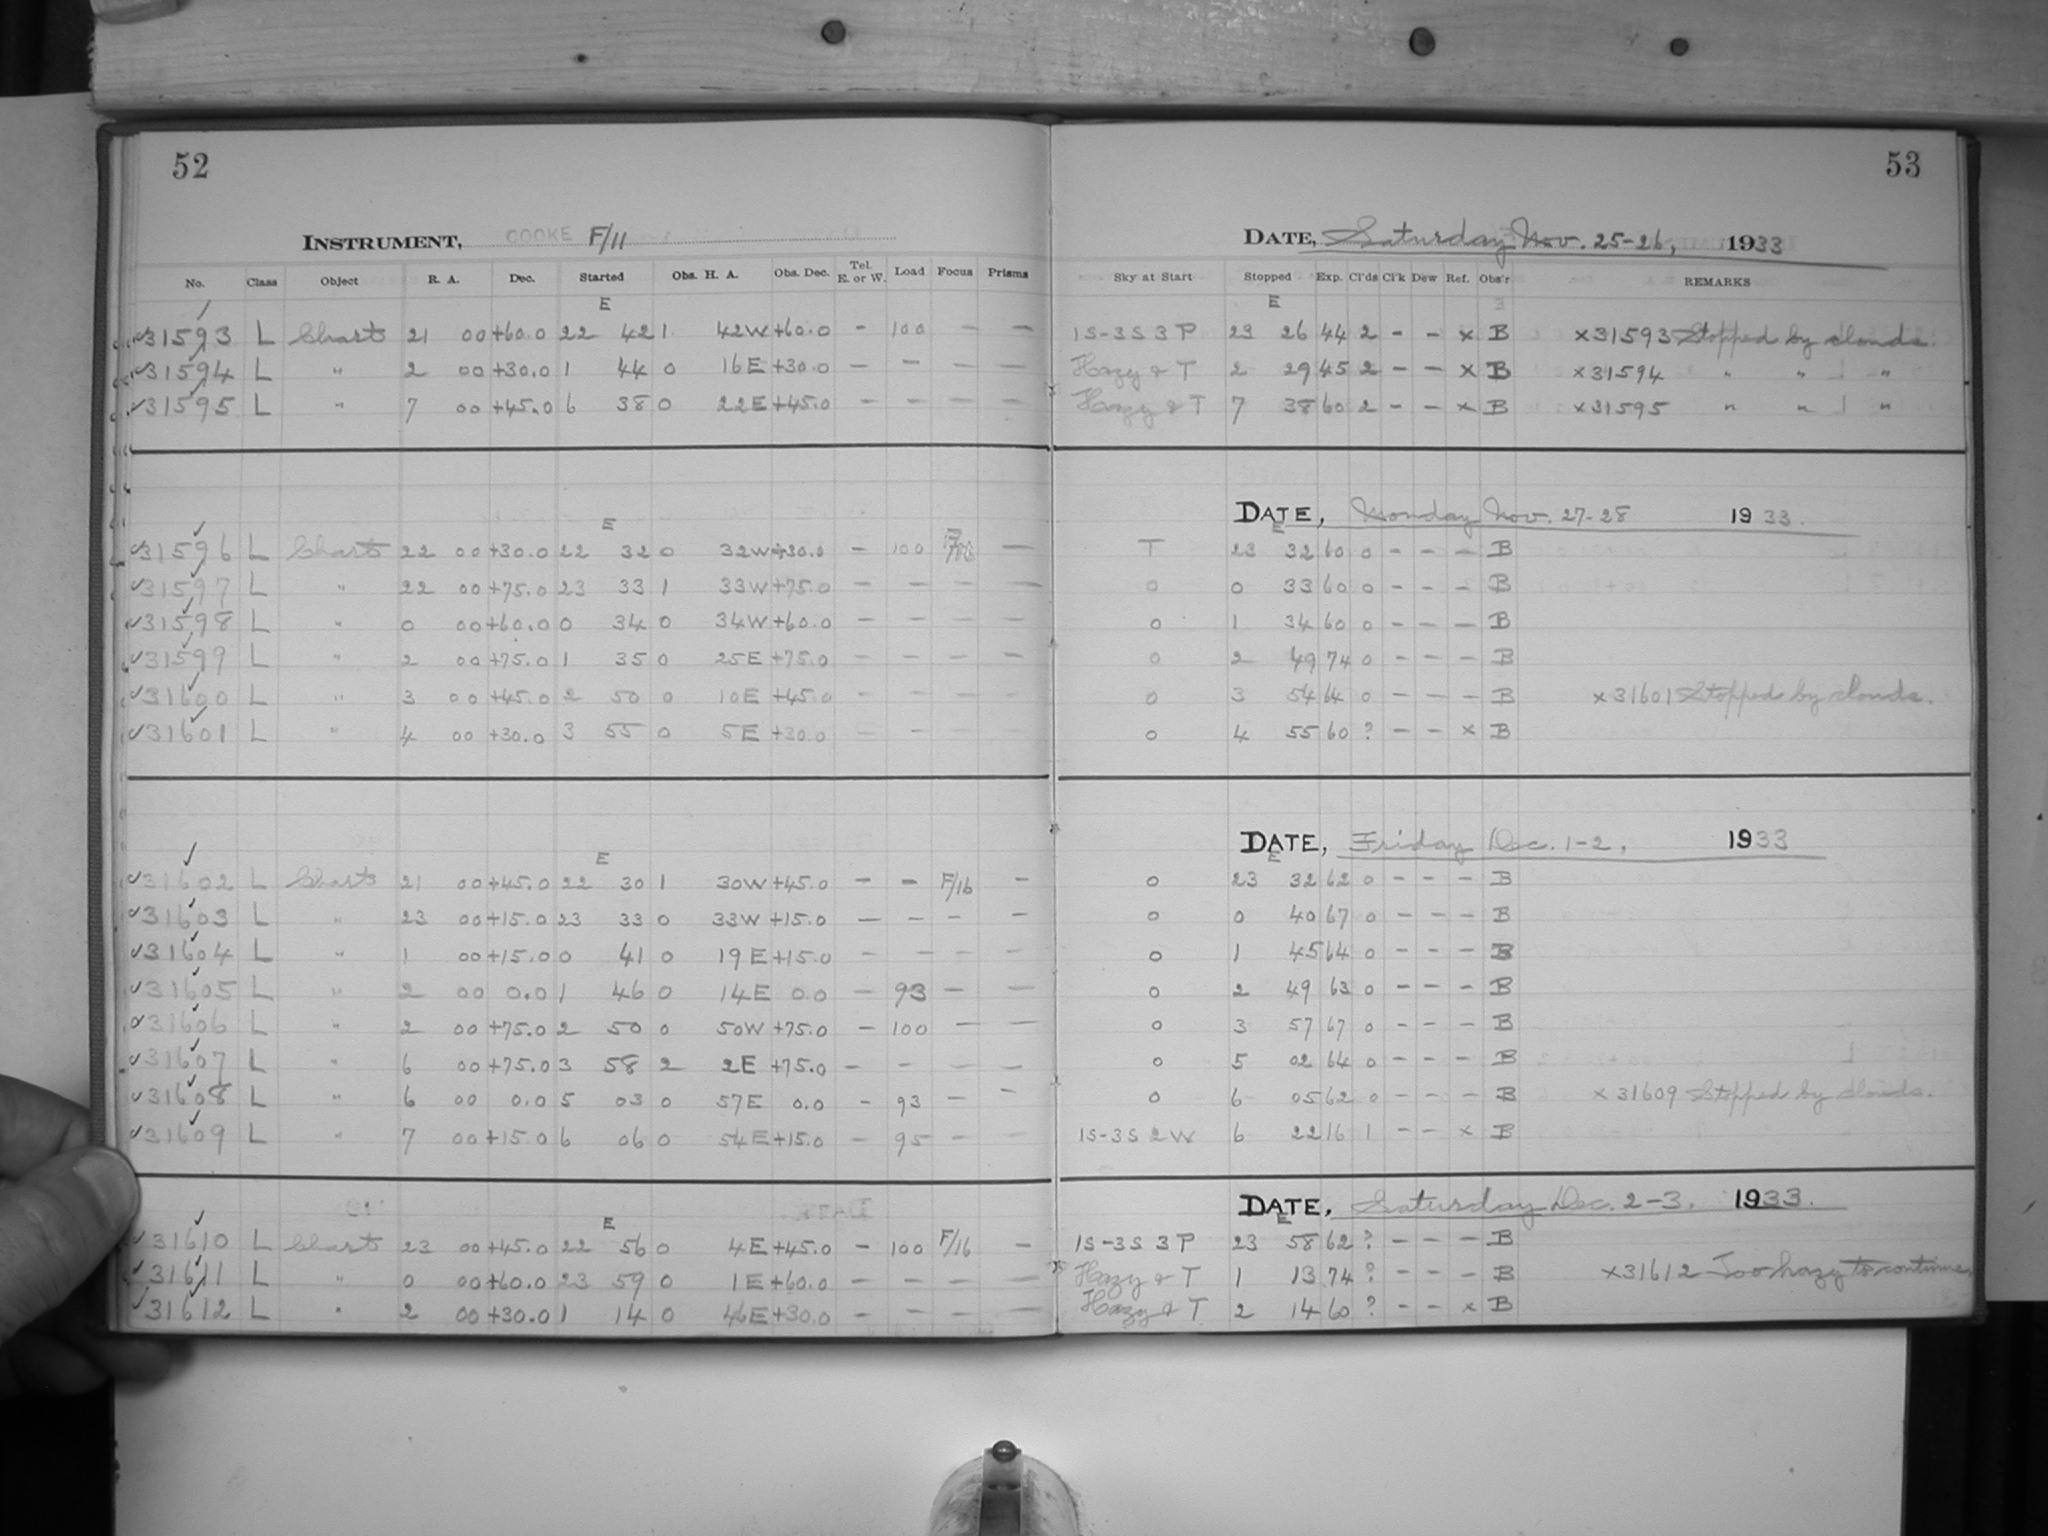 52
INSTRUMENT, COOKE F/11
No. Class Object R. A. Dec. Started Obs. H. A. Obs. Dec. Tel. E. or W. Load Focus Prisms
E
31593 L Charts 21 00 +60.0 22 42 1 42W +60.0 - 100 - -
31594 L " 2 00 +30.0 1 44 0 16E +30.0 - - - -
31595 L " 7 00 +45.0 6 38 0 22E +45.0 - - - -
E
31596 L Charts 22 00 +30.0 22 32 0 32W +30.0 - 100 -
31597 L " 22 00 +75.0 23 33 1 33W +75.0 - - - -
31598 L " 0 00 +60.0 0 34 0 34W +60.0 - - - -
31599 L " 2 00 +75.0 1 35 0 25E +75.0 - - - -
31600 L " 3 00 +45.0 2 50 0 10E +45.0 - - - -
31601 L " 4 00 +30.0 3 55 0 5E +30.0 - - - -
E
31602 L Charts 21 00 +45.0 22 30 1 30W +45.0 - - F/16 -
31603 L " 23 00 +15.0 23 33 0 33W +15.0 - - - -
31604 L " 1 00 +15.0 0 41 0 19E +15.0 - - - -
31605 L " 2 00 0.0 1 46 0 14E 0.0 - 93 - -
31606 L " 2 00 +75.0 2 50 0 50W +75.0 - 100 - -
31607 L " 6 00 +75.0 3 58 2 2E +75.0 - - - -
31608 L " 6 00 0.0 5 03 0 57E 0.0 - 93 - -
31609 L " 7 00 +15.0 6 06 0 54E +15.0 - 95 - -
E
31610 L Charts 23 00 +45.0 22 56 0 4E +45.0 - 100 F/16 -
31611 L " 0 00 +60.0 23 59 0 1E +60.0 - - - -
31612 L " 2 00 +30.0 1 14 0 46E +30.0 - - - -
53
DATE, Saturday Nov. 25-26, 1933
Sky at Start Stopped Exp. Cl'ds Cl'k Dew Ref. Obs'r REMARKS
E
1S-3S 3 P 23 26 44 2 - - x B x31593 Stopped by clouds.
Hazy & T 2 29 45 2 - - x B x31594 " " "
Hazy & T 7 38 60 2 - - x B x31595 " " "
DATE, Monday Nov. 27-28 1933.
E
T 23 32 60 0 - - - B
0 0 33 60 0 - - - B
0 1 34 60 0 - - - B
0 2 49 74 0 - - - B
0 3 54 64 0 - - - B x31601 Stopped by clouds.
0 4 55 60 ? - - x B
DATE, Friday Dec. 1-2, 1933
E
0 23 32 62 0 - - - B
0 0 40 67 0 - - - B
0 1 45 64 0 - - - B
0 2 49 63 0 - - - B
0 3 57 67 0 - - - B
0 5 02 64 0 - - - B
0 6 05 62 0 - - - B x31609 Stopped by clouds.
1S-3S 2 W 6 22 16 1 - - x B
DATE, Saturday Dec. 2-3, 1933.
E
1S-3S 3 P 23 58 62 ? - - - B
Hazy & T 1 13 74 ? - - - B x31612 Too hazy to continue.
Hazy & T 2 14 60 ? - - x B